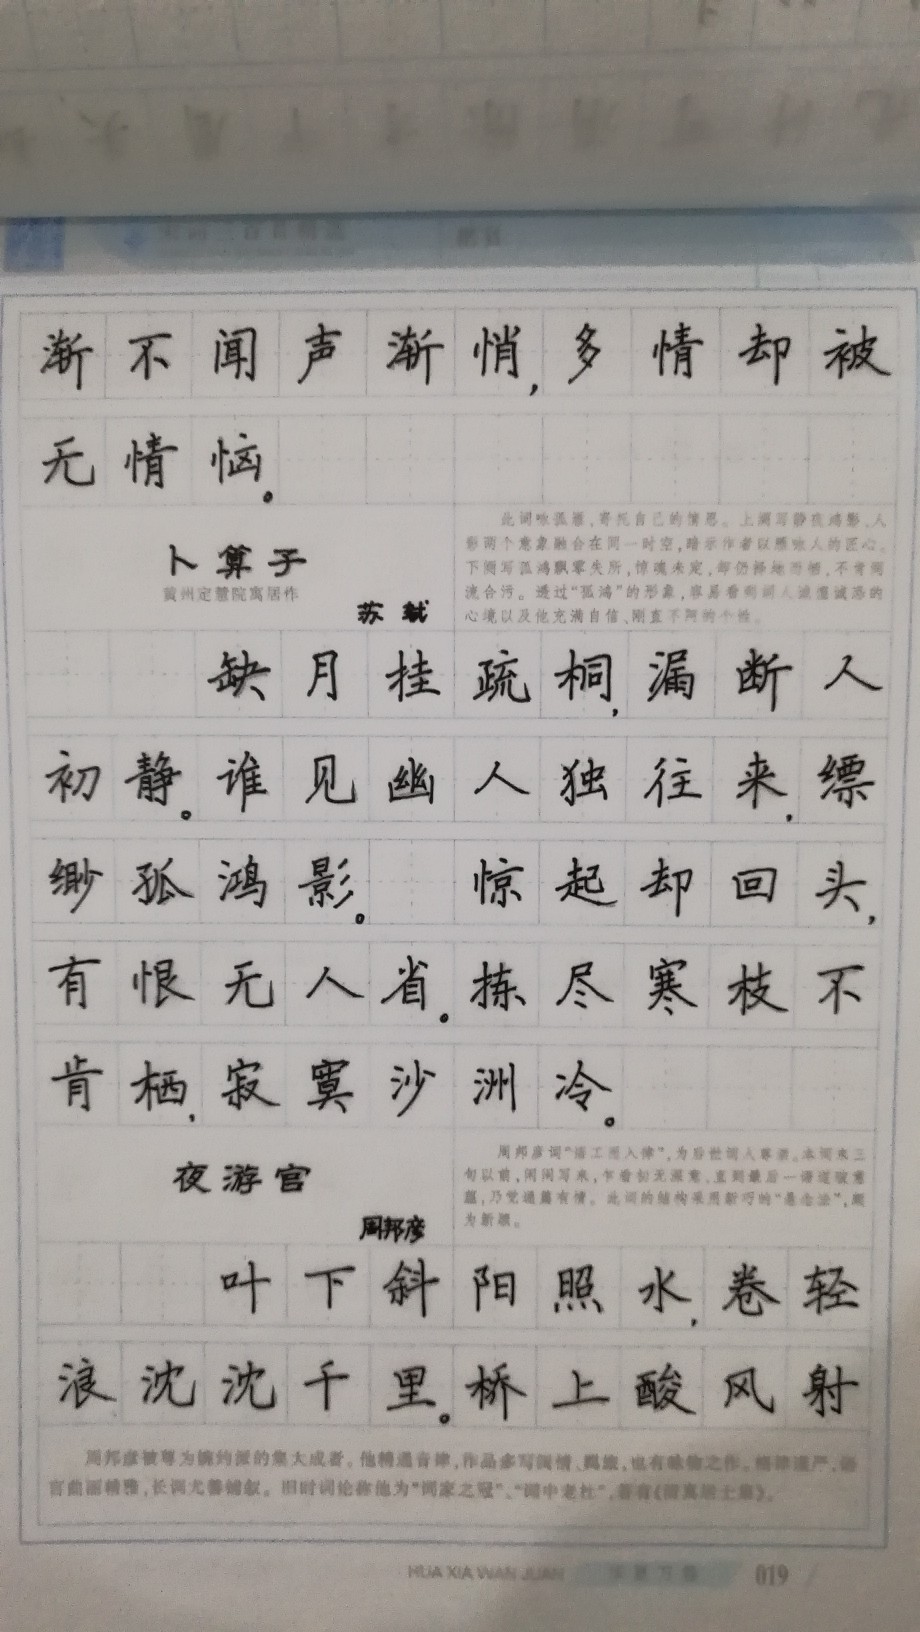 渐不闻声渐悄,多情却被
无情恼。
卜算子
黄州定慧院寓居作
苏轼
此词咏孤雁,寄托自己的情思。上阕写静夜鸿影、人
影两个意象融合在同一时空,暗示作者以雁咏人的匠心。
下阕写孤鸿飘零失所,惊魂未定,却仍择地而栖,不肯同
流合污。透过“孤鸿”的形象,容易看到词人诚惶诚恐的
心境以及他充满自信、刚直不阿的个性。
缺月挂疏桐,漏断人
初静。谁见幽人独往来,缥
缈孤鸿影。 惊起却回头,
有恨无人省。拣尽寒枝不
肯栖,寂寞沙洲冷。
夜游宫
周邦彦
周邦彦词“语工而入律”,为后世词人尊崇。本词末三
句以前,闲闲写来,乍看似无深意,直到最后一语道破意
蕴,乃觉通篇有情。此词的结构采用新巧的“悬念法”,颇
为新颖。
叶下斜阳照水,卷轻
浪沈沈千里。桥上酸风射
周邦彦被尊为婉约派的集大成者。他精通音律,作品多写闺情、羁旅,也有咏物之作。格律谨严,语
言曲丽精雅,长调尤善铺叙。旧时词论称他为“词家之冠”、“词中老杜”,著有《清真居士集》。
HUA XIA WAN JUAN 华夏万卷 019